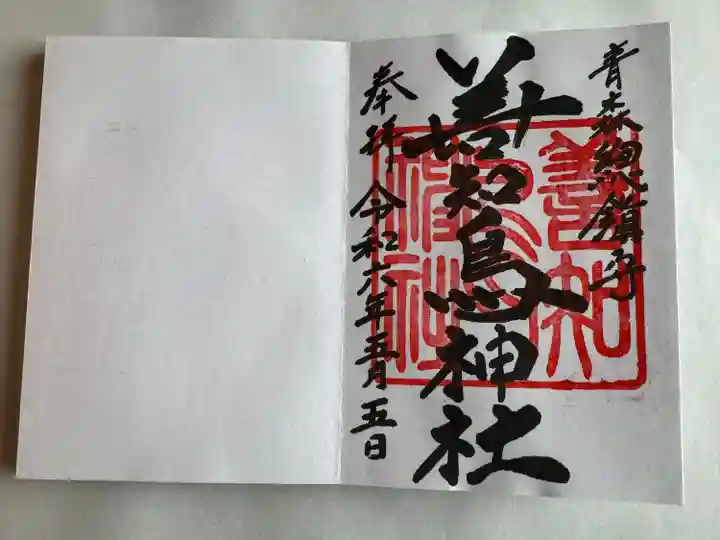 青森総鎮守
善知鳥神社
奉拝 令和六年五月五日
善知
鳥
神社